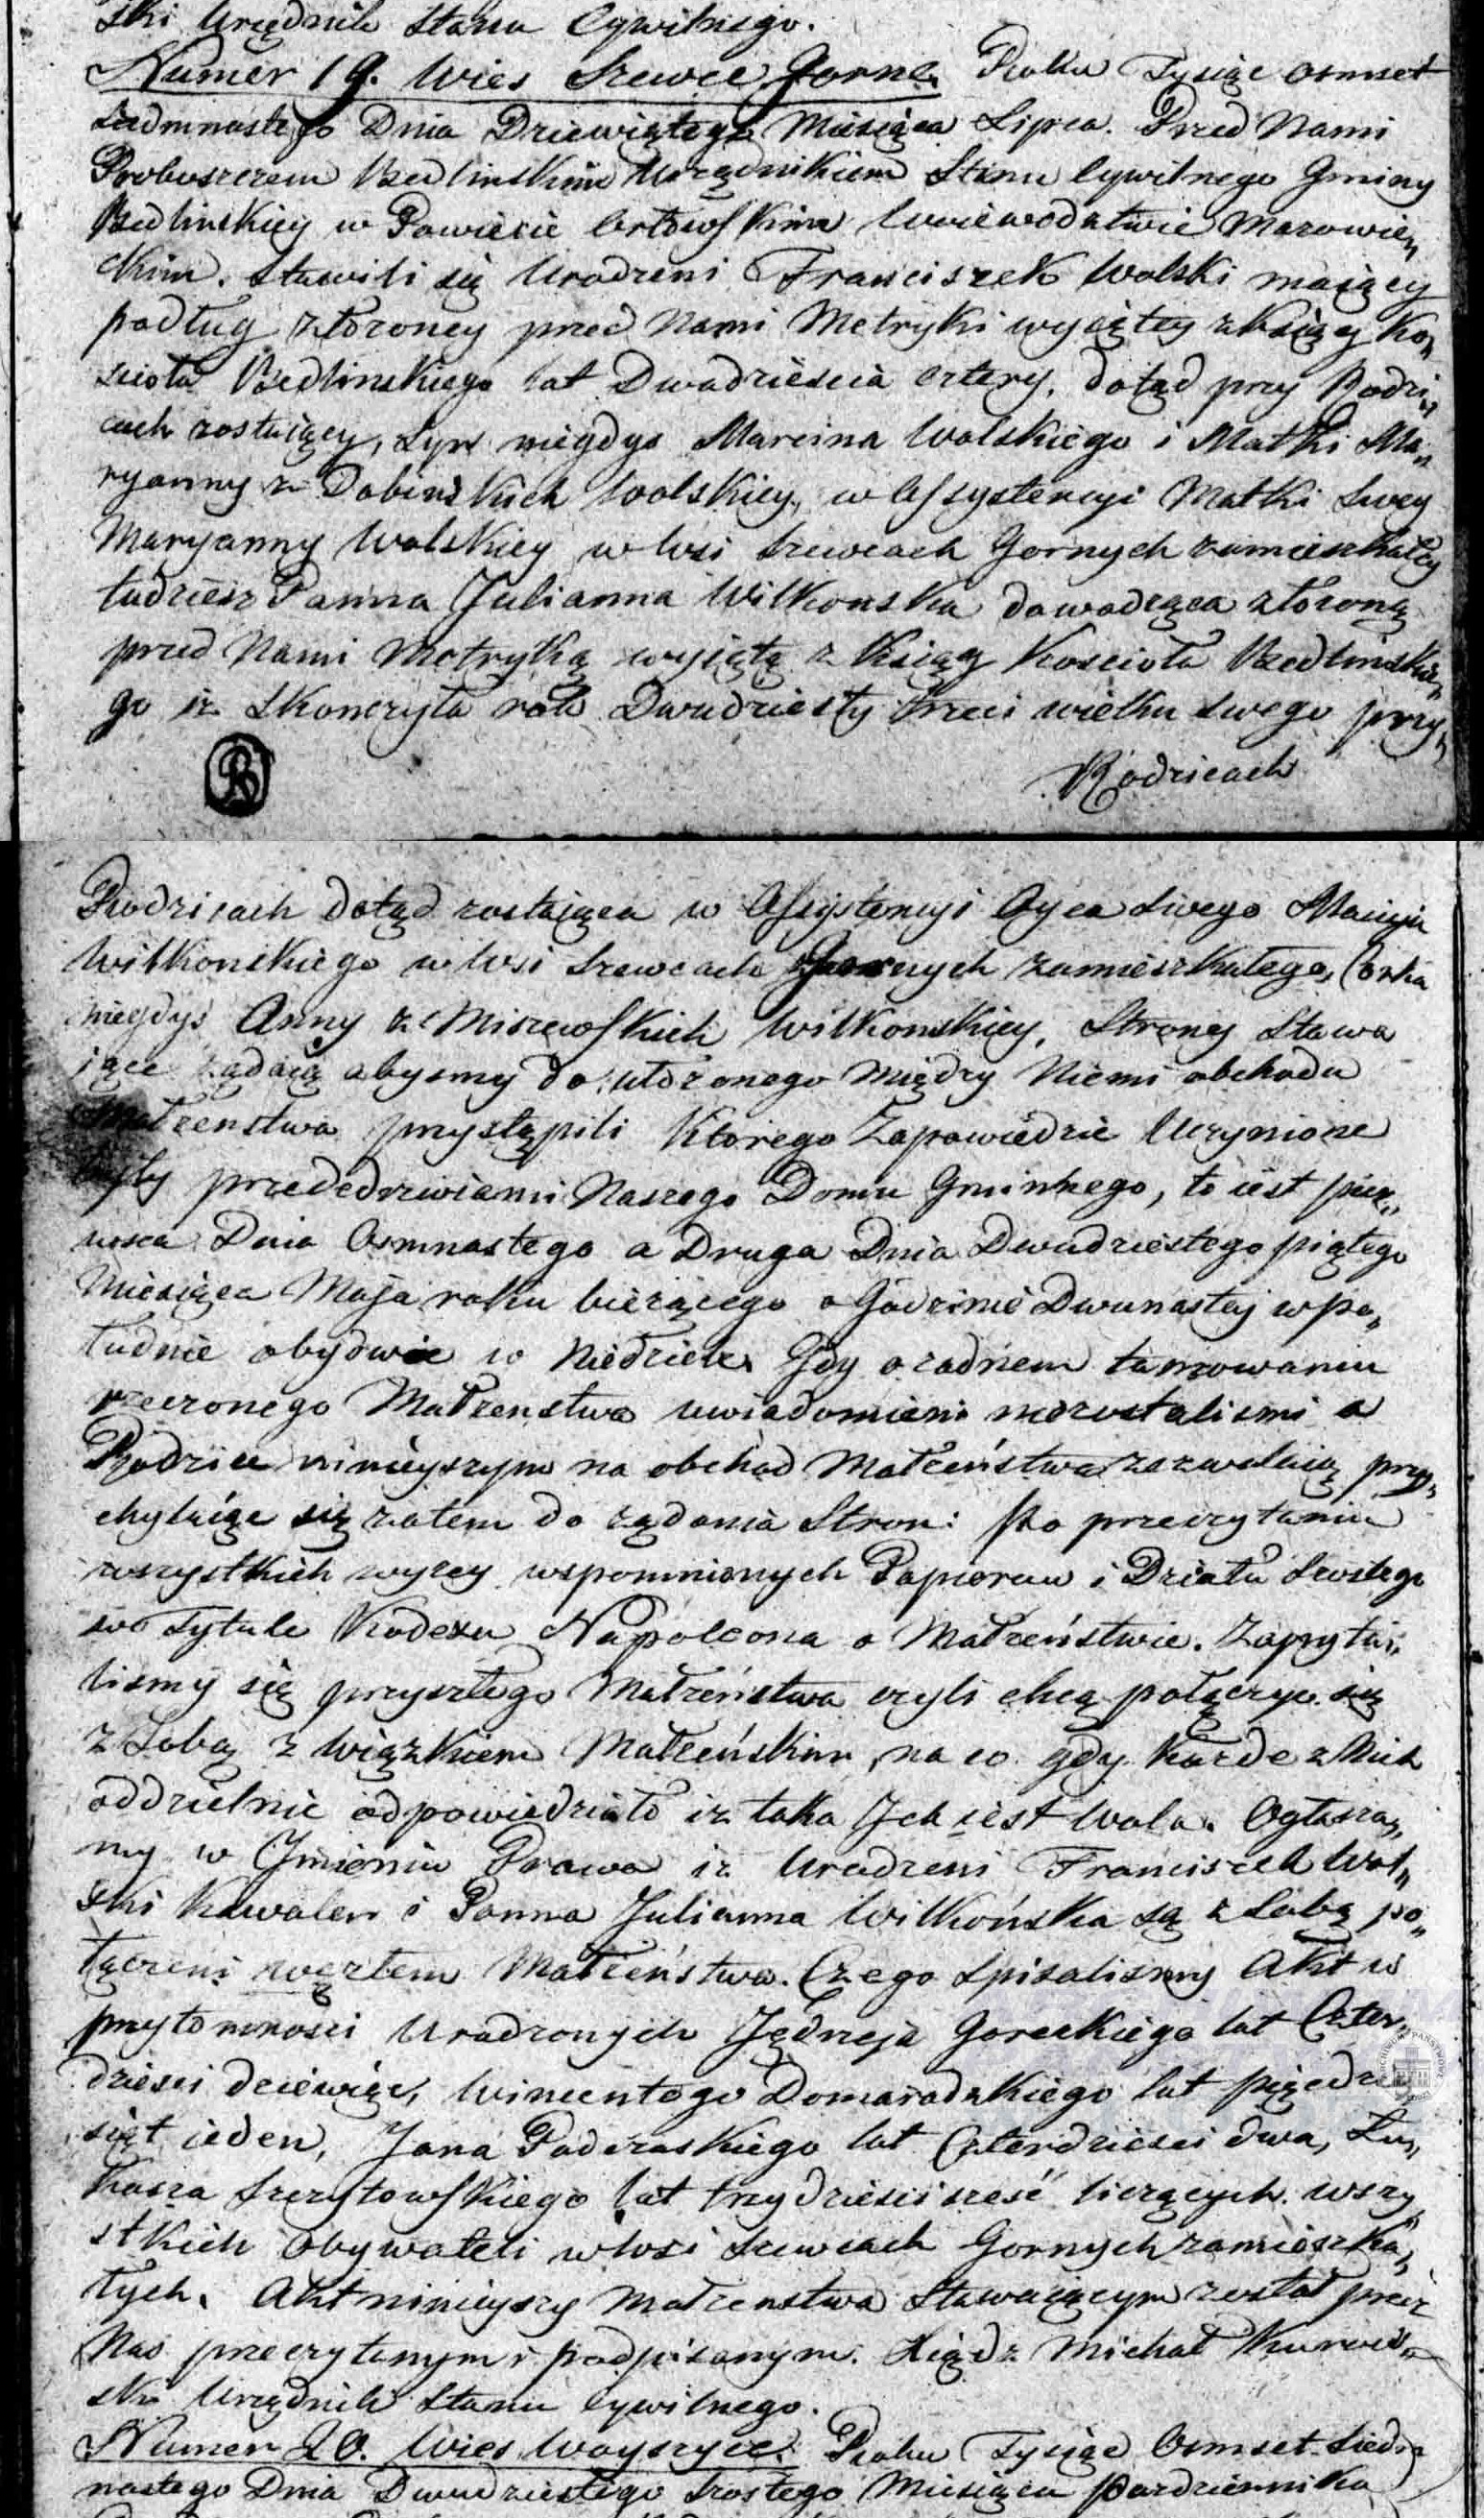 ski Urzędnik Stanu Cywilnego.
Numer 19. Wies Szewce Gorne. Roku Tysiąc osmset
siedmnastego Dnia Dziewiątego Miesiąca Lipca. Przed Nami
Proboszczem Bedlinskim Urzędnikiem Stanu Cywilnego Gminy
Bedlinskiey w Powiecie Orłowskim Woiewodztwie Mazowie„
ckim. Stawili się Urodzeni Franciszek Wolski maiący
podług złożoney przed Nami Metryki wyiętey z Xsiąg Ko„
scioła Bedlinskiego lat Dwadziescia cztery, dotąd przy Rodzi„
cach zostaiący, Syn niegdys Marcina Wolskiego i Matki Ma„
ryanny z Dobinskich Wolskiey, w Assystencyi Matki Swey
Maryanny Wolskiey w Wsi Szewcach Gornych zamieszkałey
tudziesz Panna Julianna Wilkonska dowodząca złozoną
przed Nami Metryką wyiętą z Ksiąg Koscioła Bedlinskie„
go iz Skonczyła rok Dwudziesty trzeci wieku swego przy„
Rodzicach
Rodzicach dotąd zostaiąca w Assystencyi Oyca Swego Macieja
Wilkonskiego w Wsi Szewcach Gornych zamieszkałego, Corka
niegdys Anny z Miszewskich Wilkonskiey, Strony Stawa
iące żądaią abysmy do ułozonego między Niemi obchodu
Małzenstwa przystąpili Ktorego Zapowiedzie Uczynione
były przededrzwiami Naszego Domu Gminnego, to iest pier„
wsza Dnia Osmnastego a Druga Dnia Dwudziestego piątego
Miesiąca Maja roku bieżącego o Godzinie Dwunastej w po„
łudnie obydwie w Niedziele. Gdy o żadnem tamowaniu
rzeczonego Małzenstwa uwiadomieni niezostalismi a
Rodzice ninieyszym na obchod Małżeństwa zezwalaią przy„
chylaiąc się zatem do żądania Stron: po przeczytaniu
wszystkich wyzey wspomnionych Papierow i Działu Szostego
w Tytule Kodexu Napoleona o Małżeństwie. Zapytа„
lismy się przyszłego Małżeństwa czyli chcą połączyc się
z Sobą z Wiązkiem Małżeńskim, na co gdy każde z Nich
oddzielnie odpowiedziało iz taka Jch iest Wola. Ogłasza„
my w Jmieniu Prawa iz Urodzeni Franciszek Wol„
ski Kawaler i Panna Julianna Wilkońska są z Sobą po„
łączeni węzłem Małżeństwa. Czego Spisalismy Akt w
przytomnosci Urodzonych Jędrzeja Goreckiego lat Czter„
dziesci dziewięc, Wincentego Domaradzkiego lat pięcdzie
siąt ieden, Jana Poderaskiego lat Czterdziesci dwa, Łu„
kasza Szczytowskiego lat trzydziesci szesć liczących. wszy„
stkich Obywateli w Wsi Szewcach Gornych zamieszka„
łych. Akt ninieyszy Małzenstwa Stawaiącym został przez
Nas przeczytanym i podpisanym. Xiądz Michał Kurow„
ski Urzędnik Stanu Cywilnego.
Numer 20. Wies Woyszyce. Roku Tysiąc Osmset Siedm
nastego Dnia Dwudziestego Szostego Miesiąca Pazdziernika